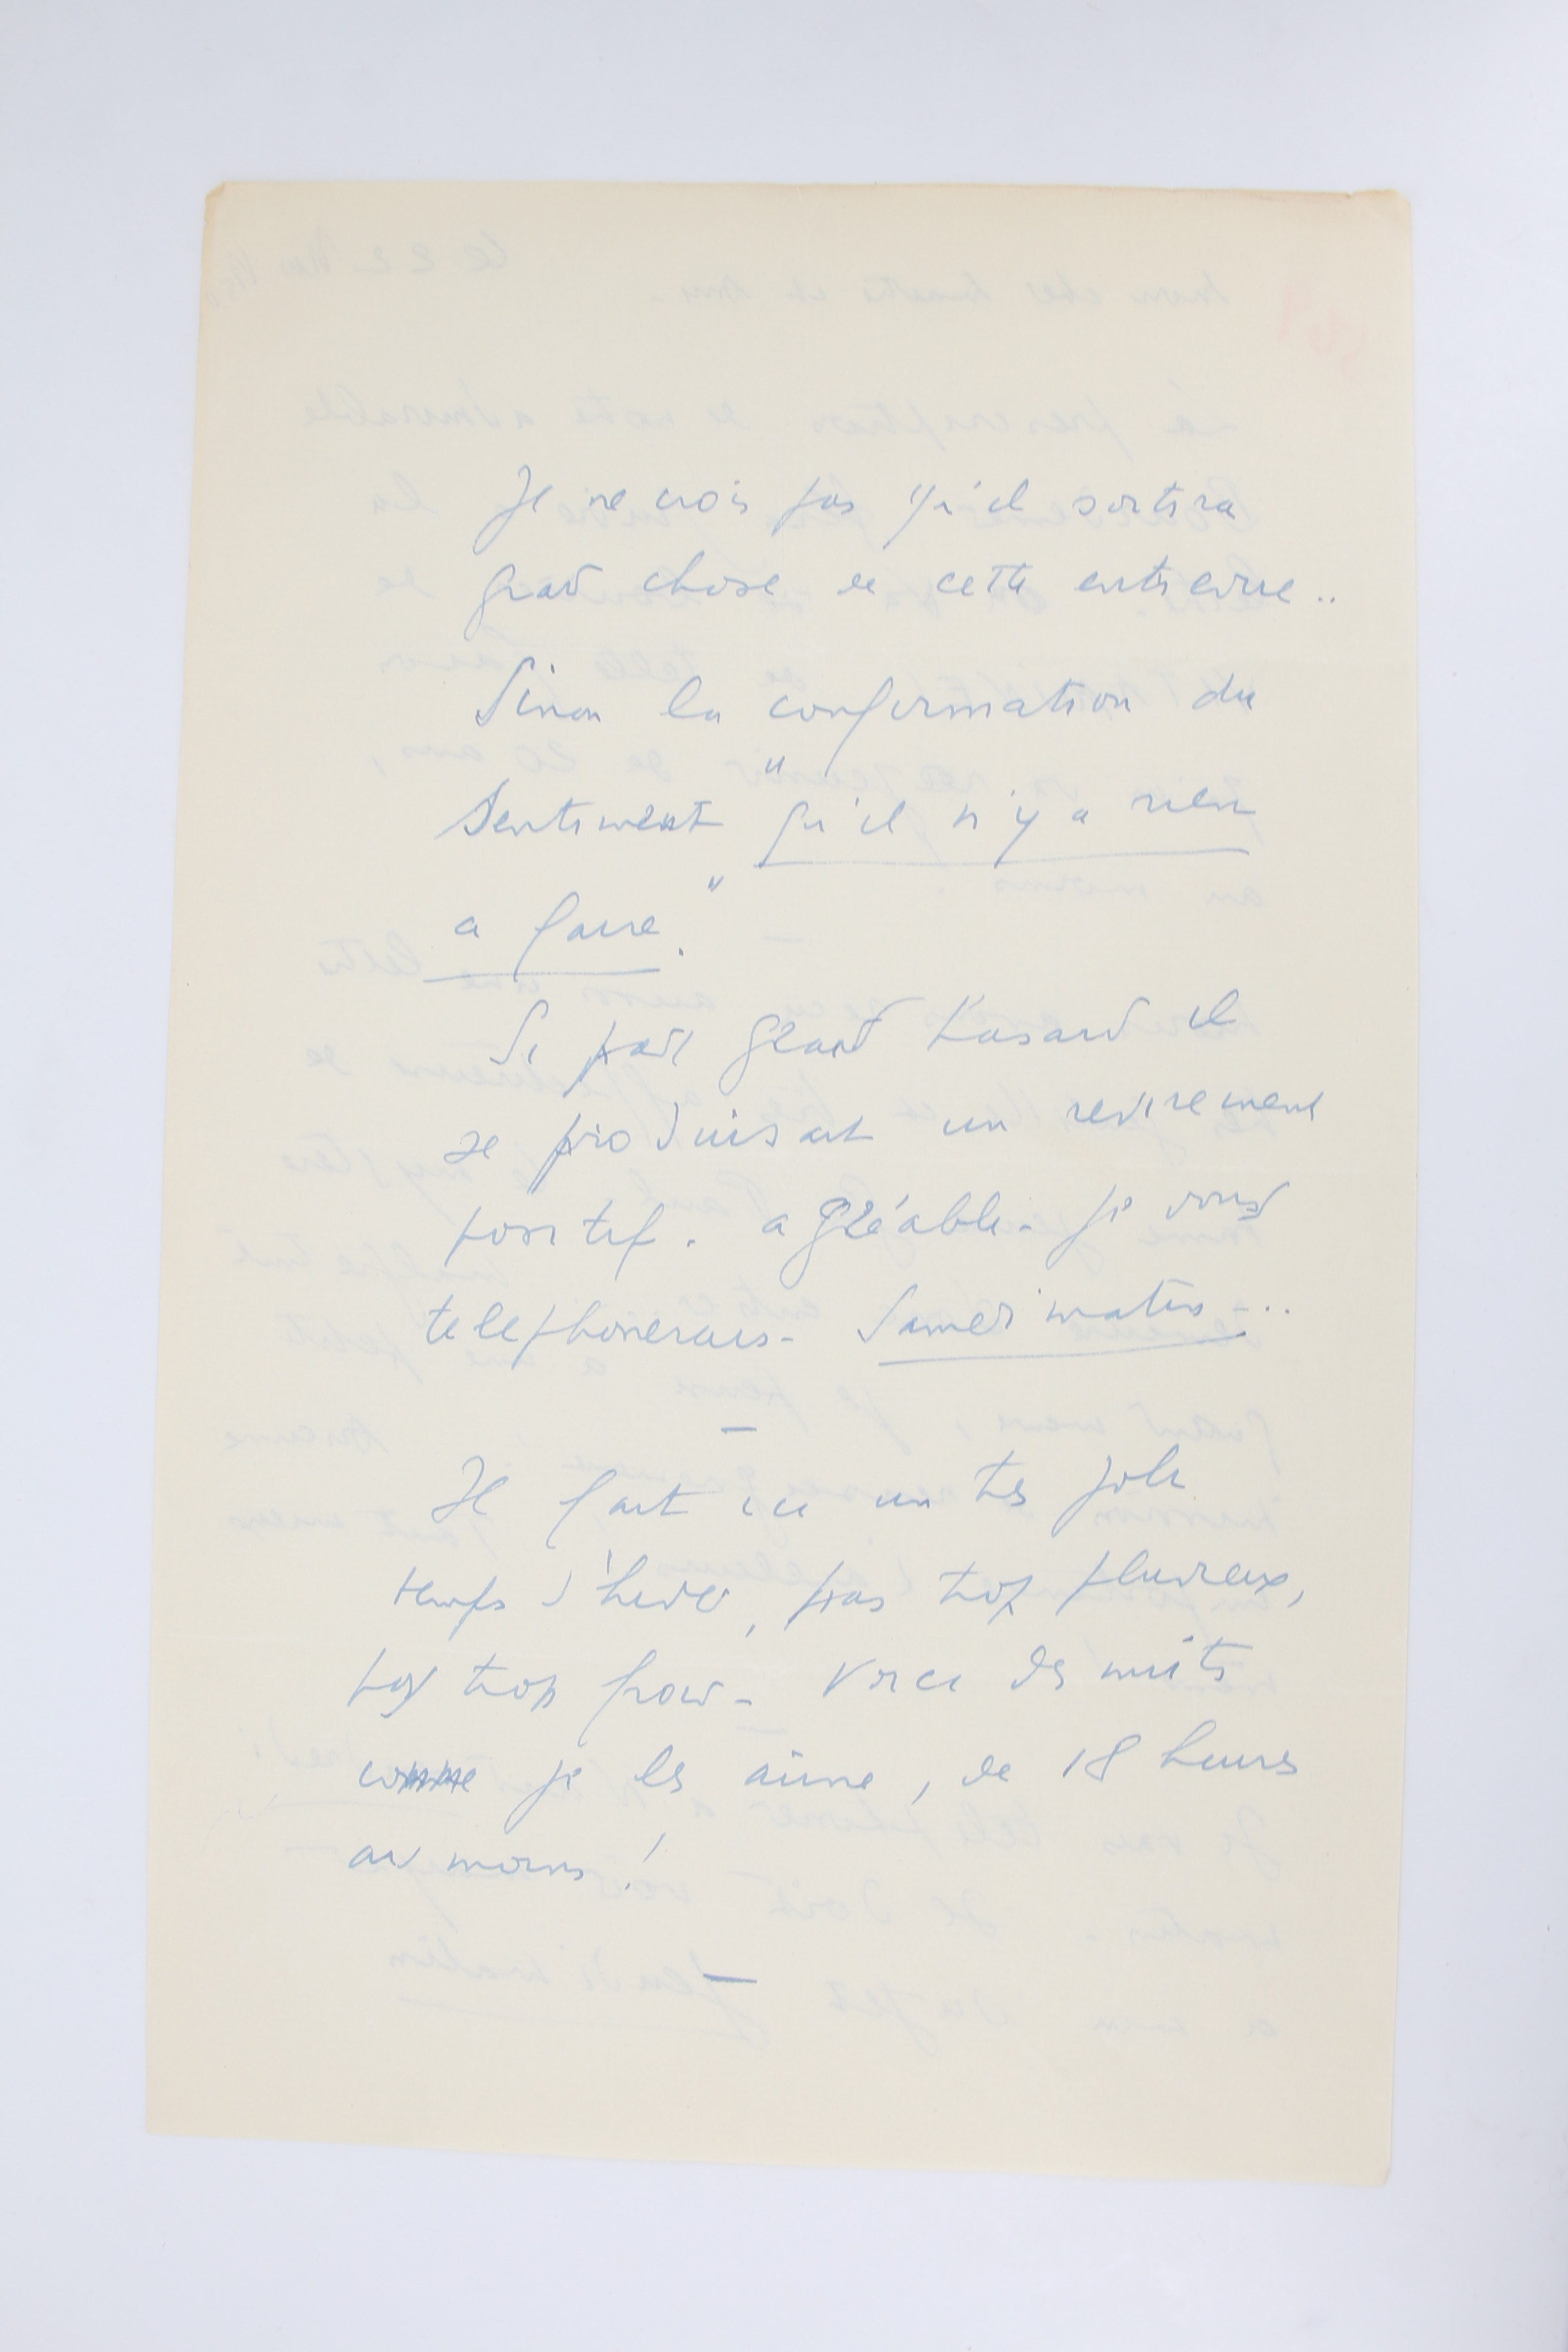 Je ne crois pas qu'il sortira
grand chose de cette entrevue..
Sinon la confirmation du
sentiment "qu'il n'y a rien
a faire".
Si par grand hasard il
se produisait un revirement
positif. agréable - je vous
telephonerais - Samedi matin -..
—
Il fait ici un très joli
temps d'hiver, pas trop pluvieux,
pas trop froid - Voici des nuits
comme je les aime, de 18 heures
au moins !
—